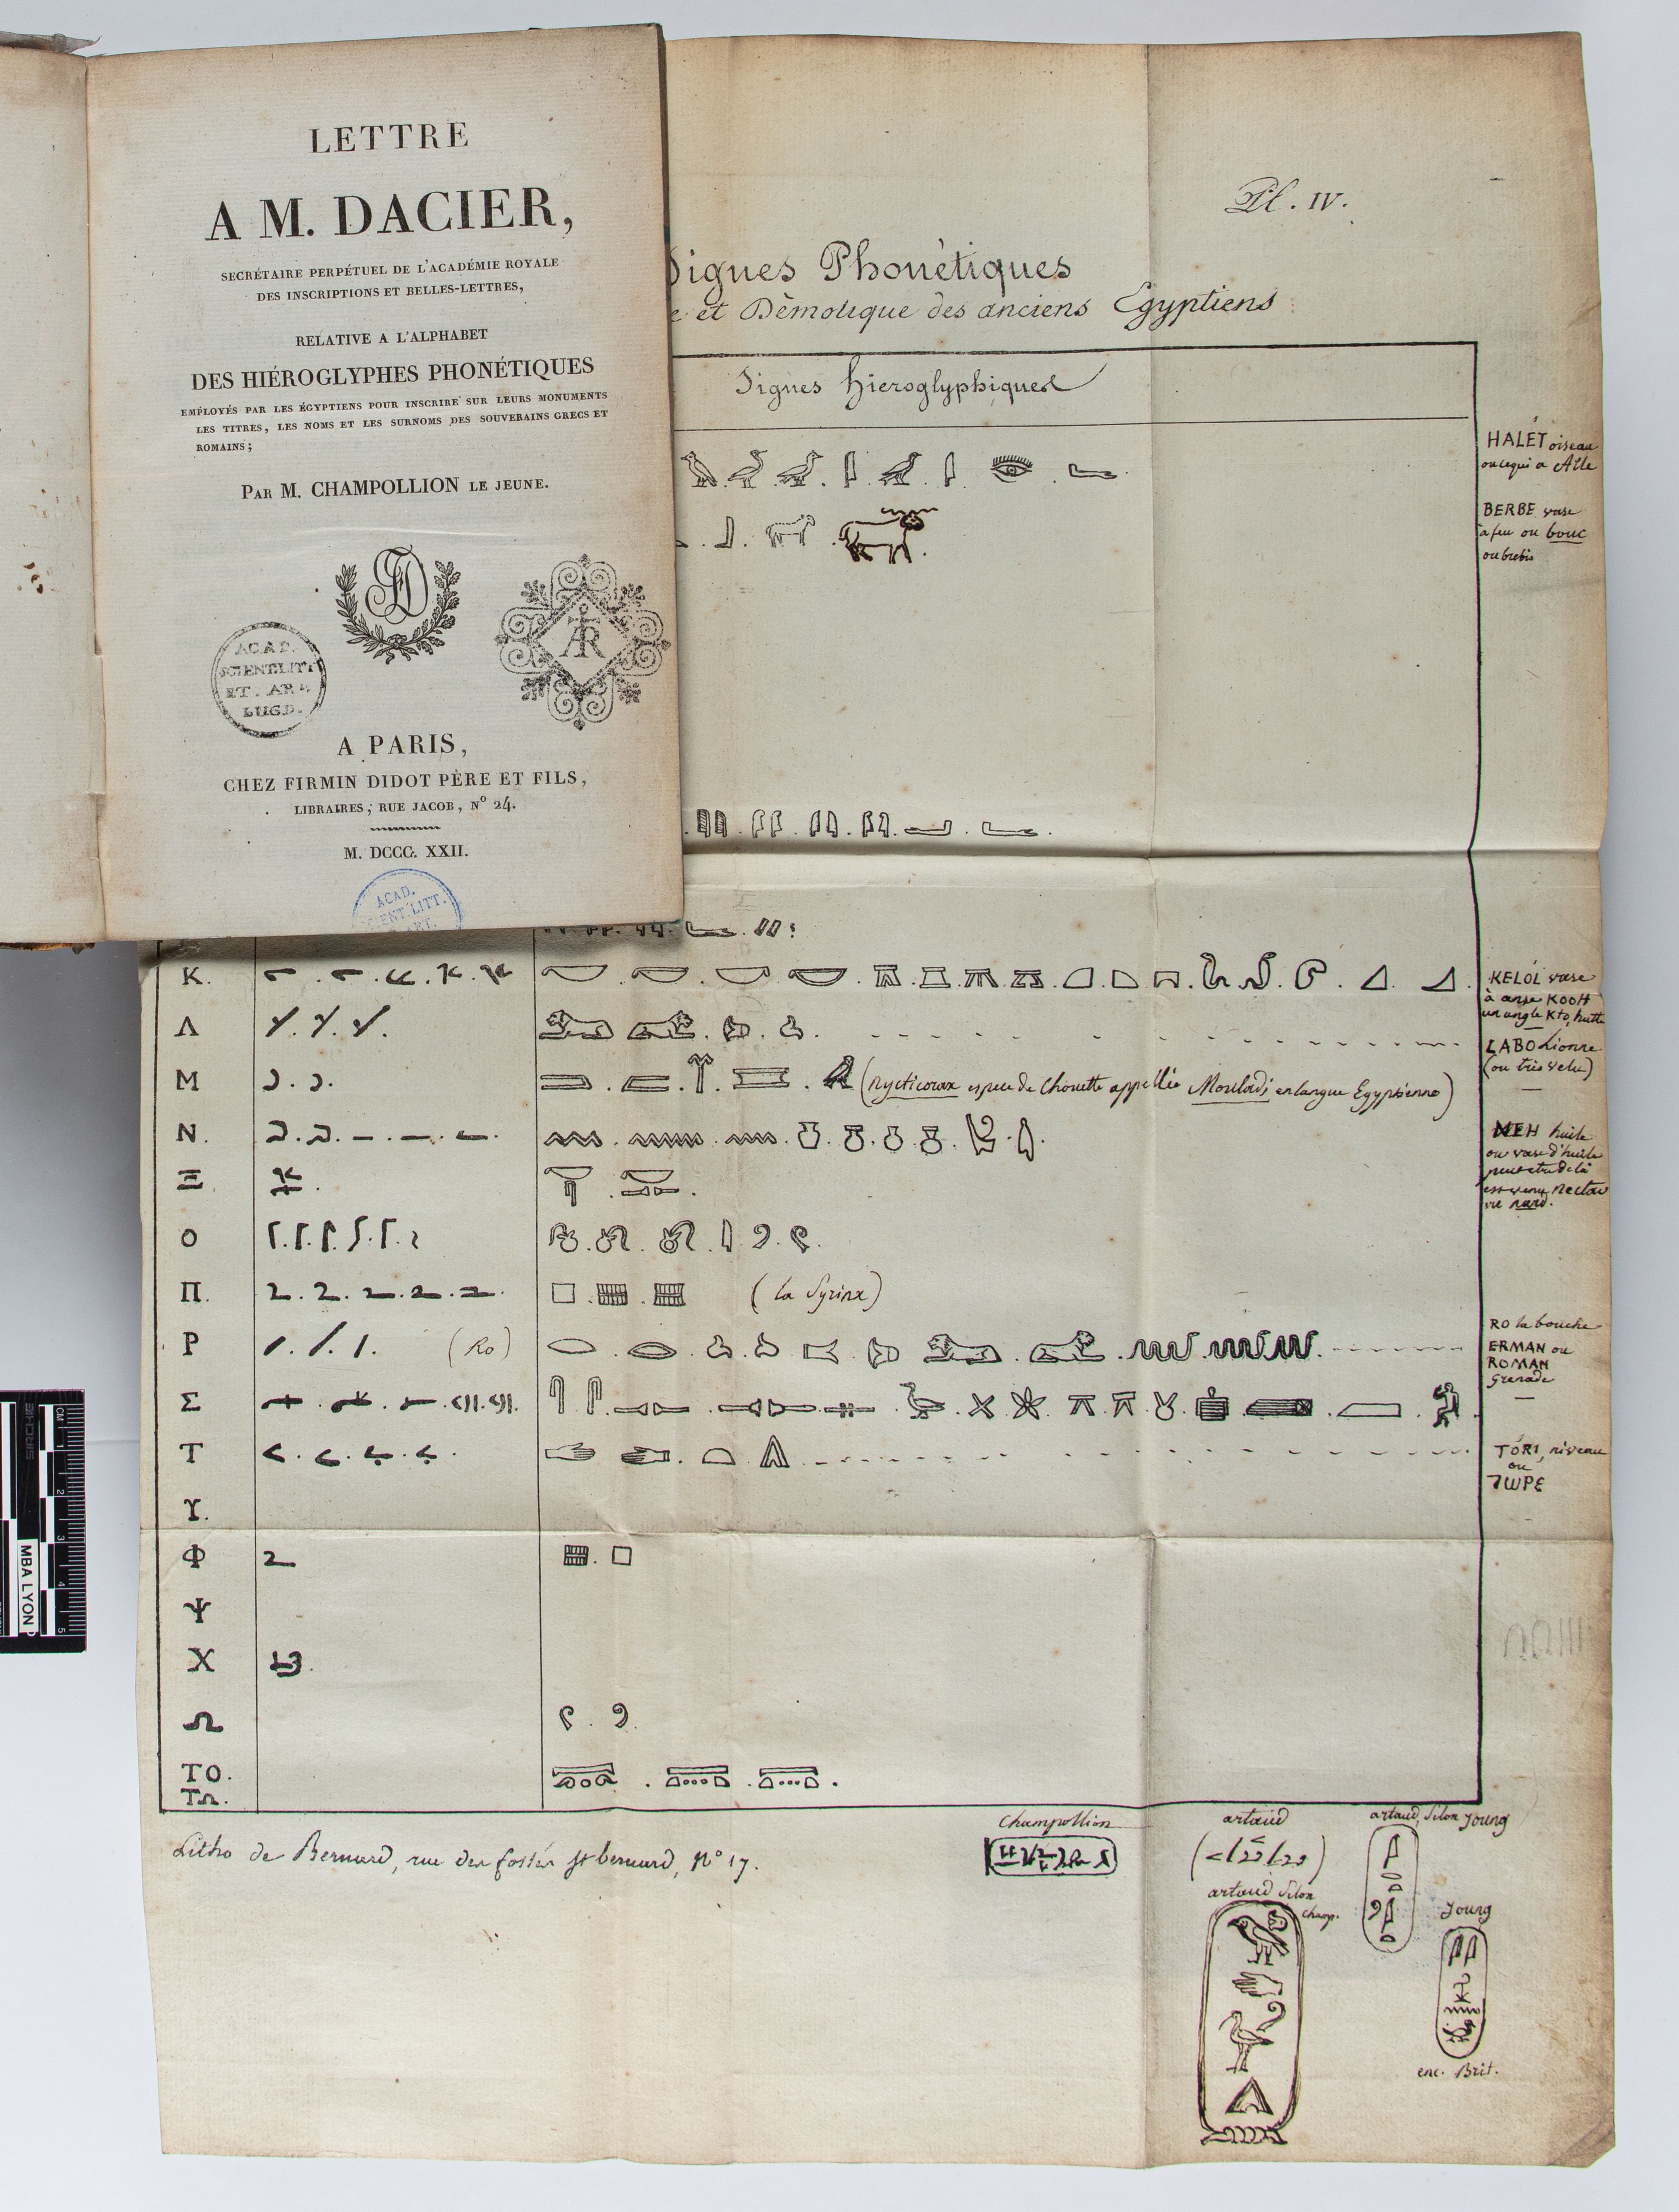 LETTRE
A M. DACIER,
SECRÉTAIRE PERPÉTUEL DE L'ACADÉMIE ROYALE
DES INSCRIPTIONS ET BELLES-LETTRES,
RELATIVE A L'ALPHABET
DES HIÉROGLYPHES PHONÉTIQUES
EMPLOYÉS PAR LES ÉGYPTIENS POUR INSCRIRE SUR LEURS MONUMENTS
LES TITRES, LES NOMS ET LES SURNOMS DES SOUVERAINS GRECS ET
ROMAINS;
PAR M. CHAMPOLLION LE JEUNE.
ACAD.
SCIENT.LITT
ET. AR
LUGD.
A PARIS,
CHEZ FIRMIN DIDOT PÈRE ET FILS,
LIBRAIRES, RUE JACOB, N° 24.
M. DCCC. XXII.
ACAD.
LITT.
Pl. IV.
Signes Phonétiques
et Démotique des anciens Égyptiens
Signes hieroglyphiques
HALÉT oiseau
ou ce qui a Aile
BERBE vase
à feu ou bouc
ou brebis
K.
KELÓL vase
à anse KOOH
un angle Kto, hutte
Λ
LABO Lionne
(ou très velu)
M
(nycticorax espece de Chouette appellée Mouladj en langue Egyptienne)
N.
MEH huile
ou vase d'huile
peut etre de là
est venu nectar
ou nard.
Ξ
O
Π.
(la Syrinx)
P
(Ro)
RO la bouche
ERMAN ou
ROMAN
grenade
Σ
T
TÓRI, niveau
ou
ΤWΡЄ
ϒ.
Φ
Ψ
X
Ω
TO.
TΩ.
Litho de Bernard, rue des fossés St bernard, N° 17.
Champollion
artaud
artaud selon Young
artaud selon
Champ.
Young
enc. Brit.
MBA LYON
CM
1
2
3
4
5